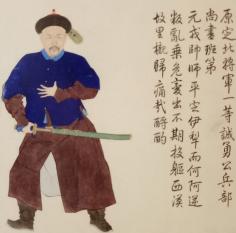 原定北將軍一等誠勇公兵部
尚書班第
元戎帥師平定伊犁而何阿逆
叛亂乘危出不期投軀西漠
故里櫬歸痛哉酹酌